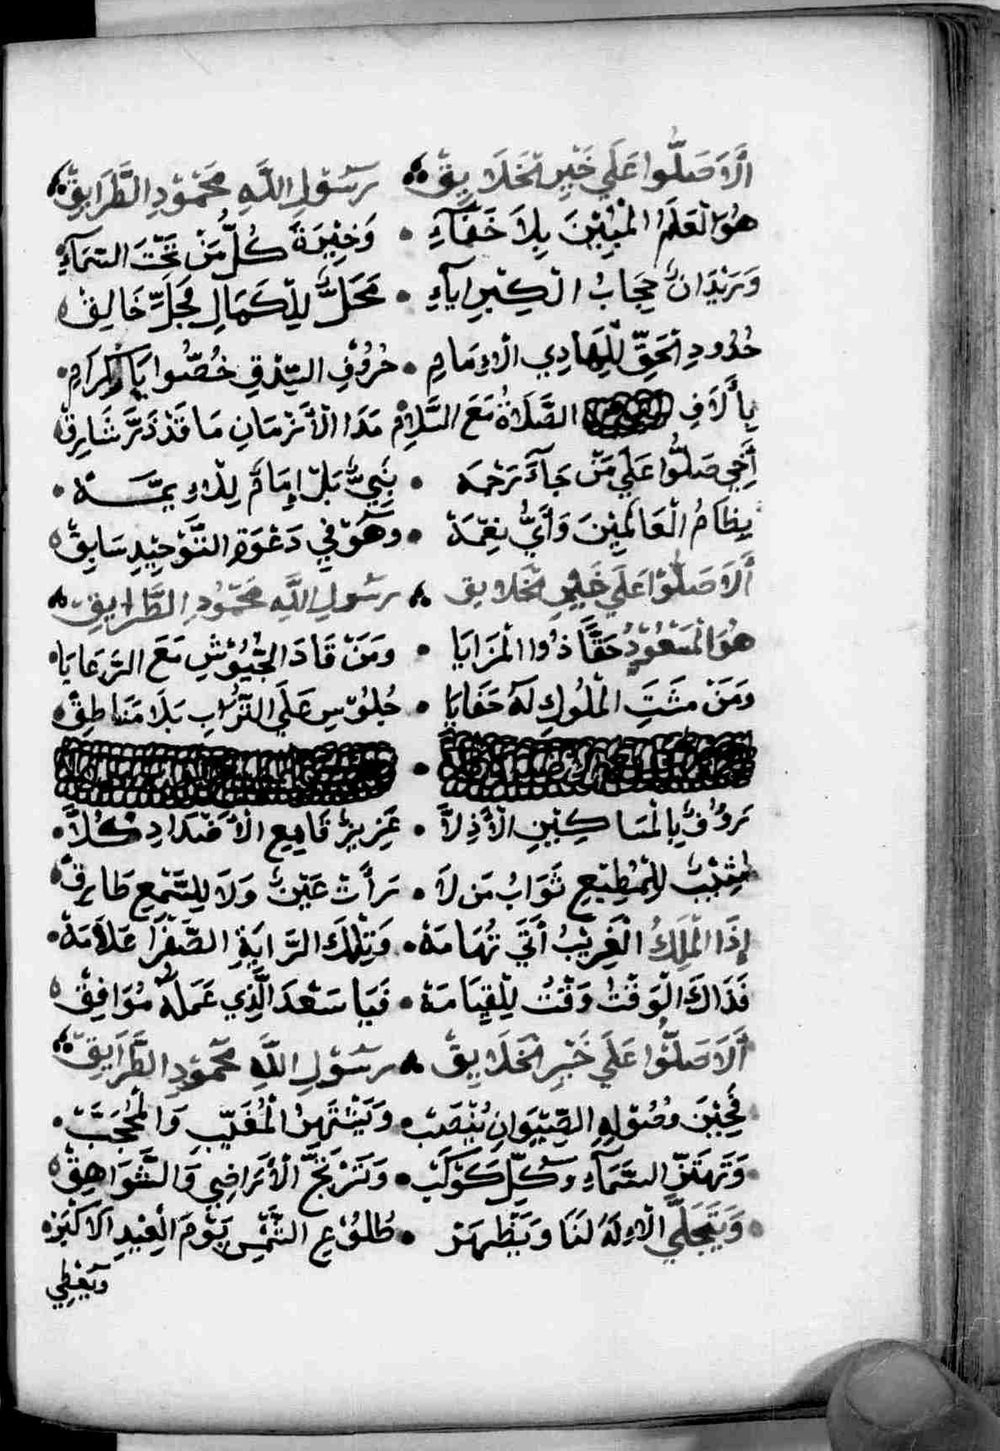 أَلَا صَلُّوا عَلَي خَيْرِ الْخَلَايِقْ رَسُوْلِ اللَّهِ مَحْمُوْدِ الطَّرَايِقْ
هُوَ الْعَلَمُ الْمُبِيْنَ بِلَا خَفَآءِ وَخِيْرَةَ كُلُّ مَنْ تَحْتَ السَّمَآءِ
حِجَابُ الْكِبْرِايَآءِ مَحَلٌّ لِلْكَمَالِ مُجَلِّ خَالِقْ
حُدُودِ الْحَقِّ لِلْهَادِي الْاِمَامِ حُرُوْفِ السِّدْقِ خُصُّوا بَالْكِرَامِ
بِأَلَافِ الصَّلَاةُ مَعَ السَّلَامْ مَدَا الْأَزْمَانِ مَا قَدْ ذَرَّ شَارِقْ
أَخِي صَلُّوا عَلَي مَنْ جَآءَ رَحْمَه بِنَبِيٌّ بَلْ إِمَامٌ لِلْائِمَّةْ
نِظَامُ الْعَالَمِيْنَ وَأَيُّ نِعْمَةْ وَهَوْ فِي دَعْوَةِ التَّوْحِيْدِ سَابِقْ
أَلَا صَلُّوْا عَلَي خَيْرِ الْخَلَايِق رَسُولِ اللَّهِ مَحْمُوْدِ الطَّرَايِقِ
هُوَ الْمَسْعُوْدُ حَقًّا ذُوا الْمَزَايَا وَمَنْ قَادَ الْجُيُوْشِ مَعَ الرَّعَايَا
وَمَنْ مَشَتِ الْمُلُوكِ لَهُ حَفَايَا جُلُوْسٍ عَلَي التُّرَابِ بَلَا مَنَاطِقْ
رَوُفٌ بِالْمَسَاكِيْنِ الْأَذِلَّا عَزِيْزٌ قَامِعِ الْأَضْدَادِ كُلَّا
مُثِيْبٌ لِلْمُطِيْعِ ثَوَابُ مَن لَا رَأَتْ عَيْنٌ وَلَا لِلسَّمْعِ طَارِقْ
إِذَا الْمَلِكُ الْغَرِيْبُ أَتَي تُهَامَةْ وَتِلْكَ الرَّايَةِ الصَّفْرَا عَلَامَةْ
فَذَاكَ الْوَقْتُ وَقْتٌ لِلْقِيَامَةْ فَيَا سَعْدَ الَّذِي عَمَلُهْ مُوَافِقْ
أَلَا صَلُّوا عَلَي خَيْرِ الْخَلَايِقْ رَسُوْلِ اللَّهِ مَحْمُوْدِ الطَّرَايِقْ
فَحِيْنَ وُصُوْلِهِ الصِّيْوَانِ يُنْصَبْ وَيَشْتَهِرُ الْمُغَيَّبِ وَالْمُحَجَّبْ
وَتَهْتَزُّ السَّمَآءِ وَكُلِّ كَوْكَبْ وَتَرْتَجُّ الْأَرَاضِي وَالشَّوَاهِقْ
وَيَتَجَلَّي الْاِلَهُ لَنَا وَيَظْهَرْ طُلُوْعِ الشَّمْسِ يَوْمَ الْعِيْدِ الَاكْبَرْ
وَيُعْطِي